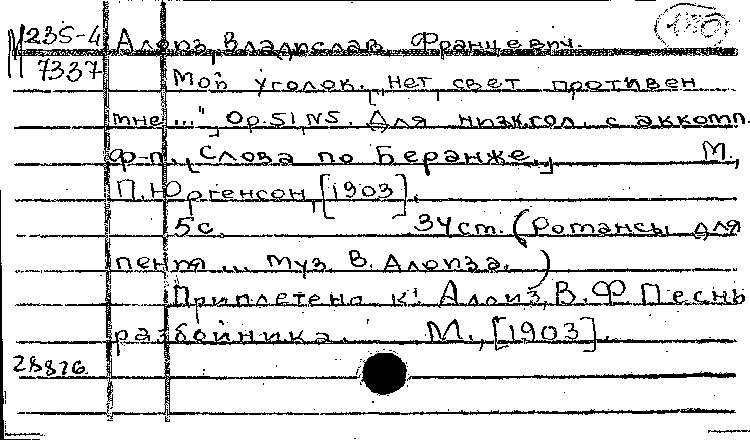 М 235-4 Алоиз, Владислав Францевич. 180
7337 Мой уголок. [„нет, свет противен
мне ..."], Op.51, N5. Для низк.гол. с аккомп.
ф-п. [Слова по Беранже.] М.,
П. Юргенсон, [1903].
5 с. 34 см. (Романсы для
пения ... муз. В. Алоиза.)
Приплетено к: Алоиз, В.Ф Песнь
разбойника. М., [1903].
28826